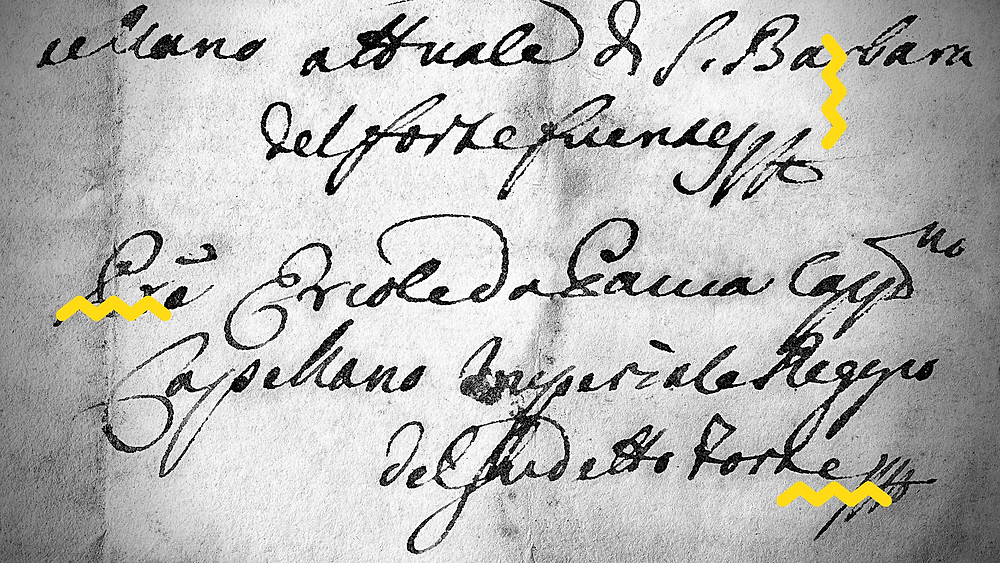 cellano attuale di S. Barbara
del forte fuentes
Frà Ercole da Cap.no
Capellano Imperiale Reggio
del sudetto Forte